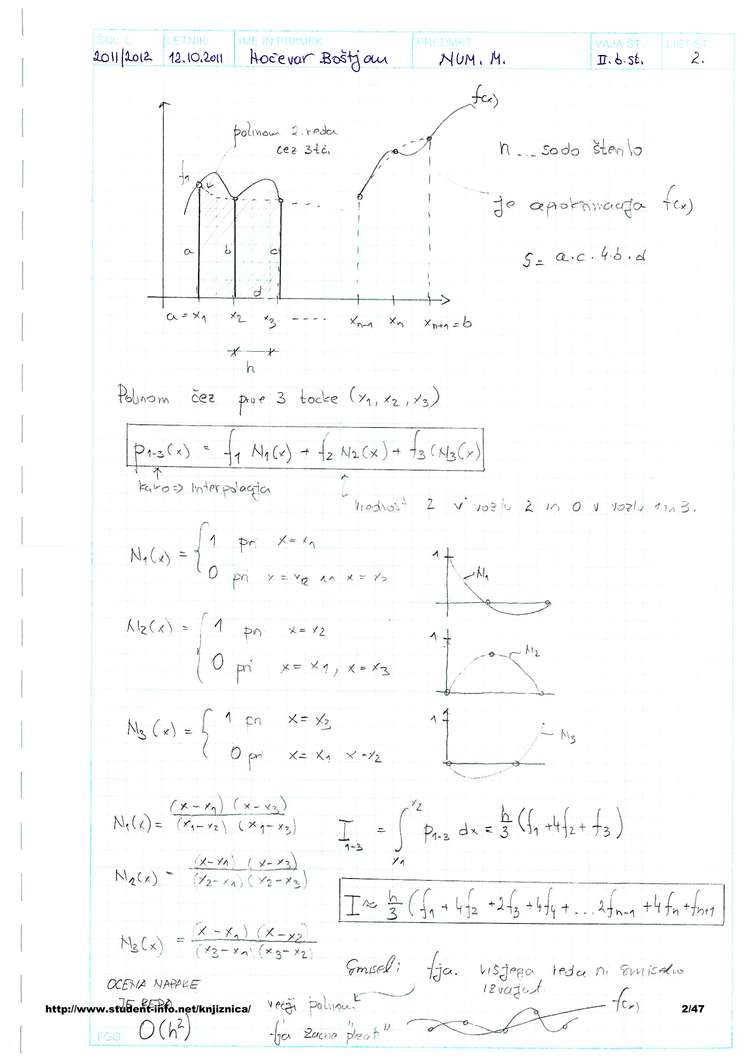 ŠOL. L. LETNIK IME IN PRIIMEK PREDMET VAJA ŠT. LIST ŠT.
2011/2012 12.10.2011 Hočevar Boštjan NUM. M. II.b.st. 2.
f(x)
polinom 2. reda
čez 3 tč.
n ... sodo število
f1
je aproksimacija f(x)
a b c
S = a·c·4·b·d
d
a = x1 x2 x3 ---- xn-1 xn xn+1 = b
h
Polinom čez prve 3 tocke (x1, x2, x3)
p1-3(x) = f1 N1(x) + f2 N2(x) + f3 (N3(x)
=> Interpolacija
vrednost 2 v vozlu 2 in 0 v vozlu 1 in 3.
N1(x) = { 1 pri x = x1
0 pri x = x2 in x = x3
1 N1
N2(x) = { 1 pri x = x2
0 pri x = x1, x = x3
1 N2
N3(x) = { 1 pri x = x3
0 pri x = x1 x = x2
1 N3
N1(x) = (x-x1)(x-x3) / (x1-x2)(x1-x3)
I1-3 = ∫ x1 x2 p1-3 dx = h/3 (f1 + 4f2 + f3)
N2(x) = (x-x1)(x-x3) / (x2-x1)(x2-x3)
I ≈ h/3 (f1 + 4f2 + 2f3 + 4f4 + ... 2fn-1 + 4fn + fn+1
N3(x) = (x-x1)(x-x2) / (x3-x1)(x3-x2)
Smisel: fja. višjega reda ni smiselno
izvajat
OCENA NAPAKE
JE REDA
O(h²)
večji polinom
fja začne "plesati"
f(x)
http://www.student-info.net/knjiznica/ 2/47
FGG